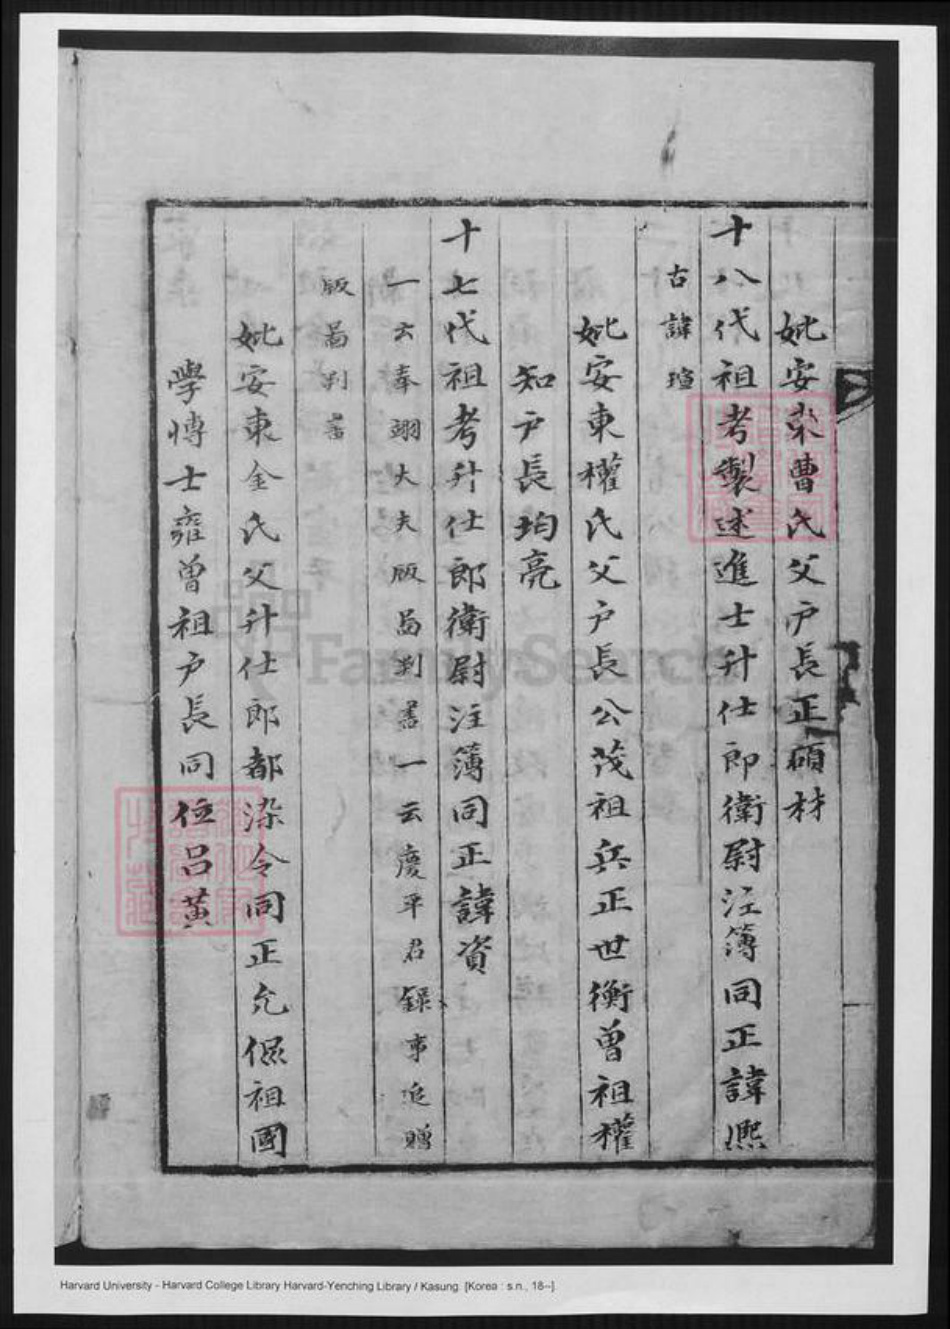 妣安東曺氏父戶長正碩材
十八代祖考製述進士升仕郎衛尉注簿同正諱凞
古諱瑄
妣安東權氏父戶長公茂祖兵正世衡曾祖權
知戶長均亮
十七代祖考升仕郎衛尉注簿同正諱資
一云奉翊大夫版啚判書一云慶平君錄事追贈
版啚判書
妣安東金氏父升仕郎都染令同正允偲祖國
學博士雍曾祖戶長同位呂黃
FamilySearch
Harvard University - Harvard College Library Harvard-Yenching Library / Kasung. [Korea : s.n., 18--].